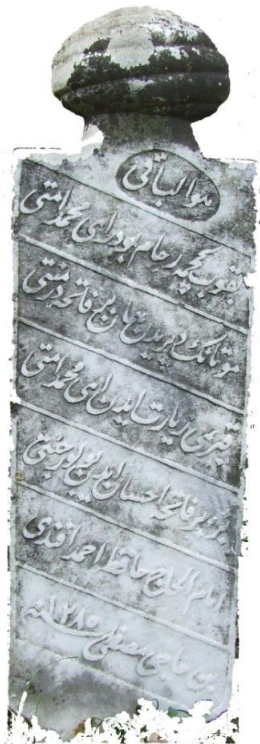 هو الباقی
یقوب کچمه رجام بودر ای محمد امتی
موتانک دیریدن همان بر فاتحه در منتی
قبرمی زیارت ایدن ای محمد امتی
بر فاتحه احسان ایدن جنتی
امام الحاج حافظ احمد افندی
بن حاجی مصطفی سنه ۱۲۸۵